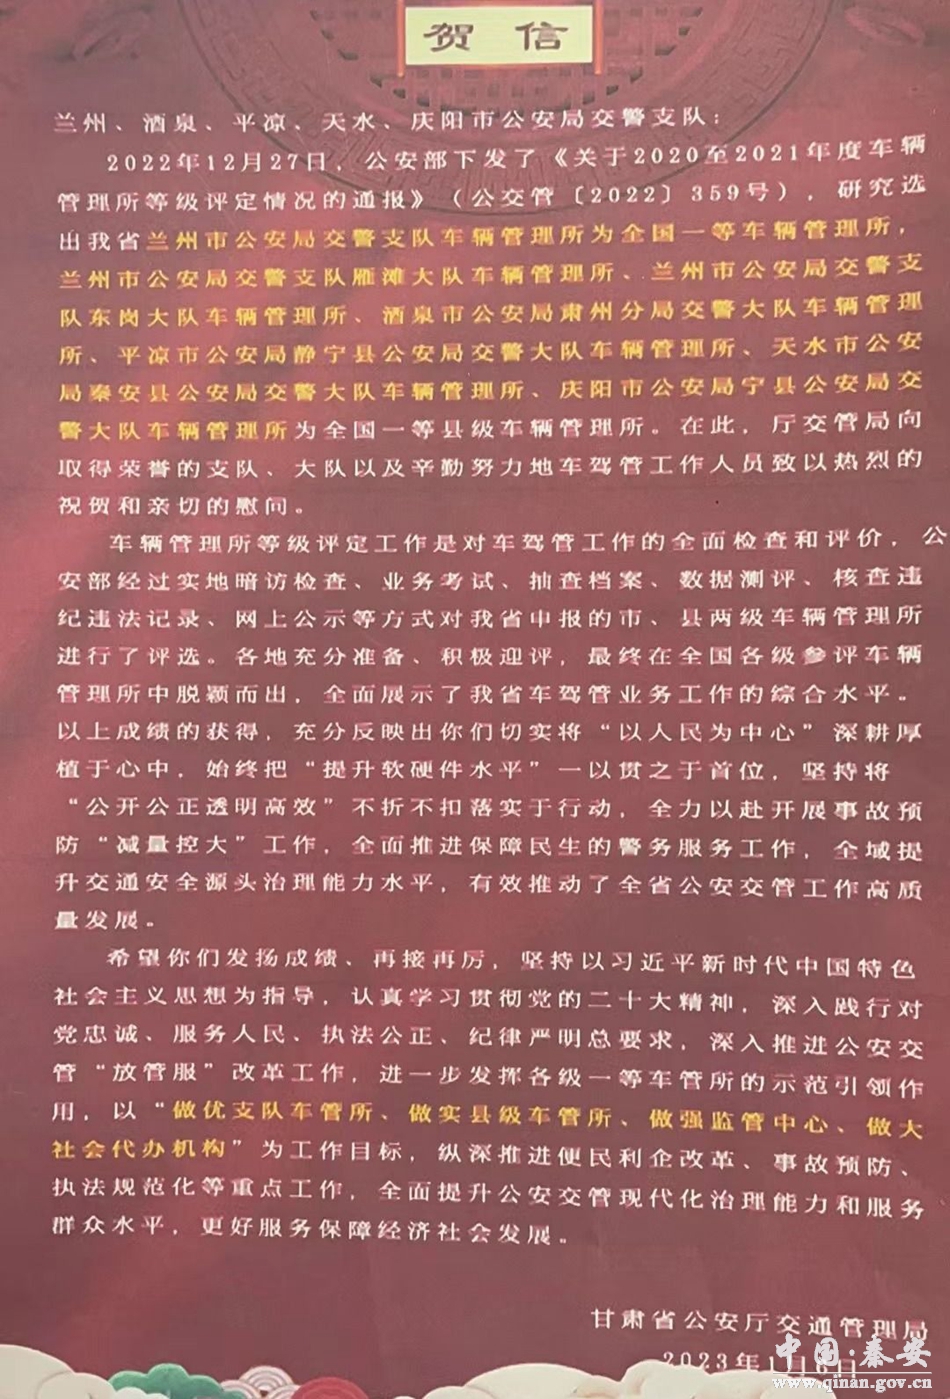 贺 信
兰州、酒泉、平凉、天水、庆阳市公安局交警支队：
2022年12月27日，公安部下发了《关于2020至2021年度车辆
管理所等级评定情况的通报》（公交管〔2022〕359号），研究选
出我省兰州市公安局交警支队车辆管理所为全国一等车辆管理所，
兰州市公安局交警支队雁滩大队车辆管理所、兰州市公安局交警支
队东岗大队车辆管理所、酒泉市公安局肃州分局交警大队车辆管理
所、平凉市公安局静宁县公安局交警大队车辆管理所、天水市公安
局秦安县公安局交警大队车辆管理所、庆阳市公安局宁县公安局交
警大队车辆管理所为全国一等县级车辆管理所。在此，厅交管局向
取得荣誉的支队、大队以及辛勤努力地车驾管工作人员致以热烈的
祝贺和亲切的慰问。
车辆管理所等级评定工作是对车驾管工作的全面检查和评价，公
安部经过实地暗访检查、业务考试、抽查档案、数据测评、核查违
纪违法记录、网上公示等方式对我省申报的市、县两级车辆管理所
进行了评选。各地充分准备、积极迎评，最终在全国各级参评车辆
管理所中脱颖而出，全面展示了我省车驾管业务工作的综合水平。
以上成绩的获得，充分反映出你们切实将“以人民为中心”深耕厚
植于心中，始终把“提升软硬件水平”一以贯之于首位，坚持将
“公开公正透明高效”不折不扣落实于行动，全力以赴开展事故预
防“减量控大”工作，全面推进保障民生的警务服务工作，全域提
升交通安全源头治理能力水平，有效推动了全省公安交管工作高质
量发展。
希望你们发扬成绩、再接再厉，坚持以习近平新时代中国特色
社会主义思想为指导，认真学习贯彻党的二十大精神，深入践行对
党忠诚、服务人民、执法公正、纪律严明总要求，深入推进公安交
管“放管服”改革工作，进一步发挥各级一等车管所的示范引领作
用，以“做优支队车管所、做实县级车管所、做强监管中心、做大
社会代办机构”为工作目标，纵深推进便民利企改革、事故预防、
执法规范化等重点工作，全面提升公安交管现代化治理能力和服务
群众水平，更好服务保障经济社会发展。
甘肃省公安厅交通管理局
2023年1月6日
中国·秦安
www.qinan.gov.cn